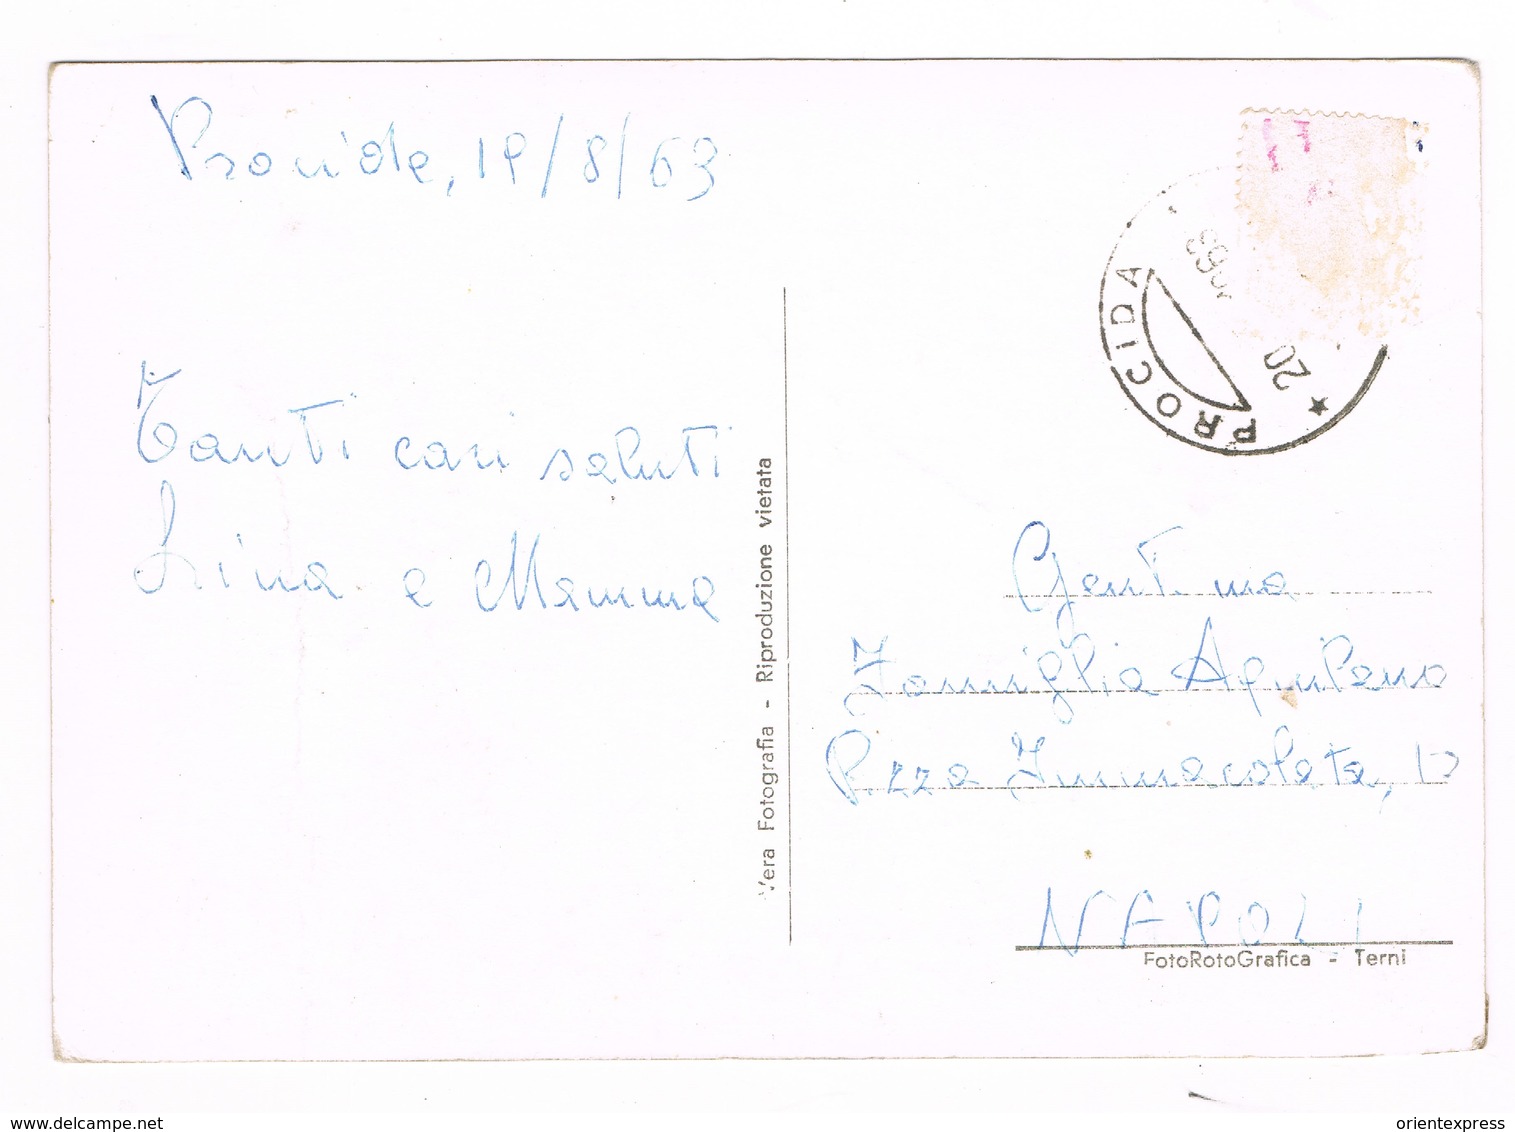 Procida, 19/8/63
Tanti cari saluti
Lina e Mamma
Vera Fotografia - Riproduzione vietata
PROCIDA
63
20
Gent.ma
Famiglia Aquilano
P.zza Immacolata,
NAPOLI
FotoRotoGrafica - Terni
www.delcampe.net
orientexpress